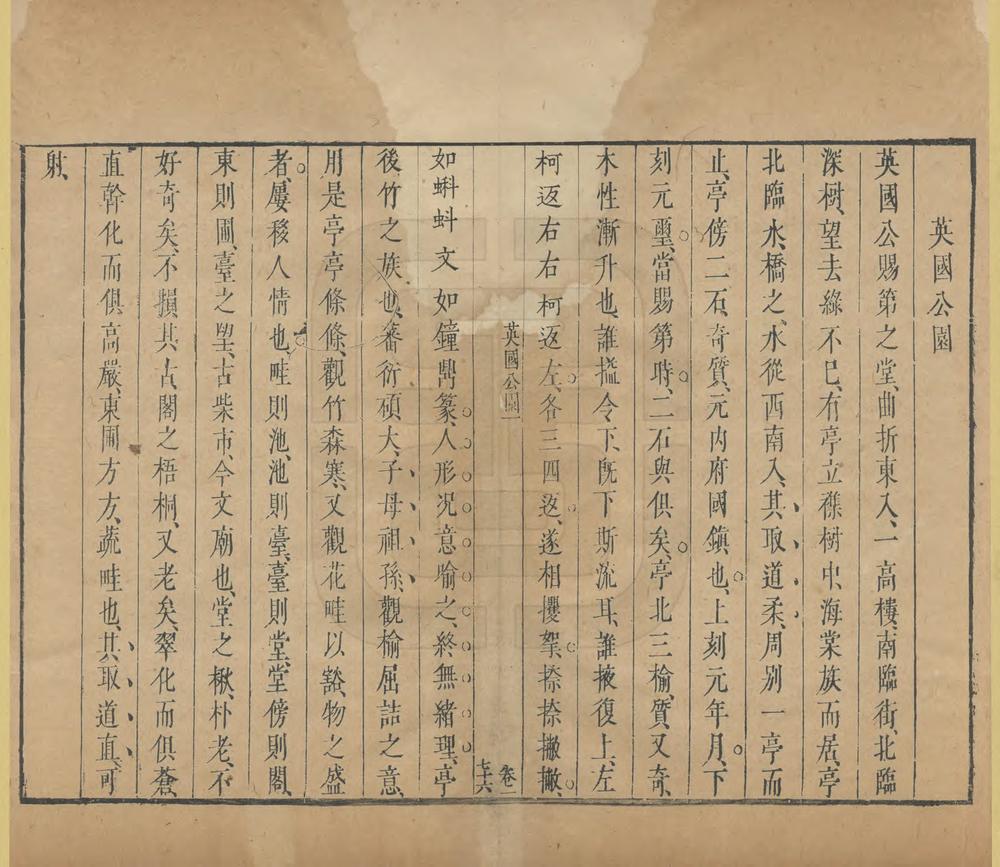 英國公園
英國公賜第之堂、曲折東入、一高樓、南臨街、北臨
深樹、望去綠不已、有亭立襍樹中、海棠族而居、亭
北臨水、橋之、水從西南入、其取道柔、周别一亭而
止、亭傍二石、奇質、元内府國鎮也、上刻元年月、下
刻元璽、當賜第時、二石與俱矣、亭北三榆、質又奇、
木性漸升也、誰搤令下、既下斯流耳、誰掖復上、左
柯返右、右柯返左、各三四返、遂相攖拏、捺捺撇撇、
英國公園一
卷一
七十六
如蝌蚪文、如鐘鼎篆、人形况意喻之、終無緒理、亭
後竹之族也、蕃衍碩大、子母祖孫、觀榆屈詰之意、
用是亭亭條條、觀竹森寒、又觀花畦以豁、物之盛
者、屢移人情也、畦則池、池則臺、臺則堂、堂傍則閣、
東則圃、臺之望、古柴市、今文廟也、堂之楸、朴老、不
好奇矣、不損其古、閣之梧桐、又老矣、翠化而俱蒼、
直幹化而俱高嚴、東圃方方、蔬畦也、其取道直、可
射、